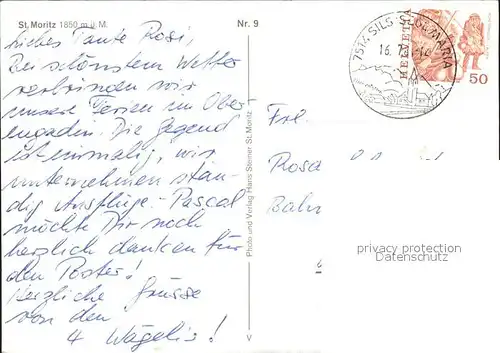 St. Moritz 1850 m ü. M.
Nr. 9
Liebes Tante Rosi,
Bei schönstem Wetter
verbringen wir
unsere Ferien im Ober-
engaden. Die Gegend
ist einmalig, wir
unternehmen stän-
dig Ausflüge. - Pascal
möchte Dir noch
herzlich danken für
den Poster!
Herzliche Grüsse
von den
4 Wägelis!
Photo und Verlag Hans Steiner St. Moritz
V
7514 SILS-SEGL MARIA
16. 7.
HELVETIA
50
Frl.
Rosa
Bahn
privacy protection
Datenschutz